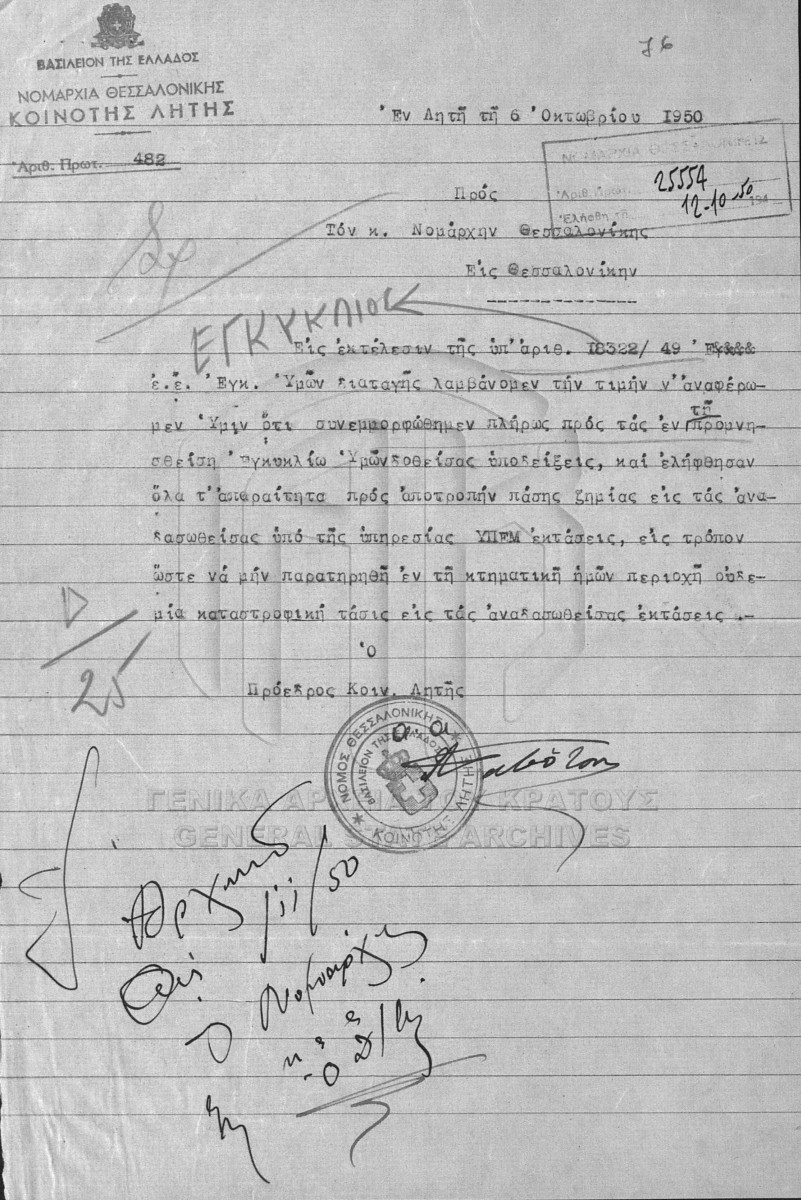 76
ΒΑΣΙΛΕΙΟΝ ΤΗΣ ΕΛΛΑΔΟΣ
ΝΟΜΑΡΧΙΑ ΘΕΣΣΑΛΟΝΙΚΗΣ
ΚΟΙΝΟΤΗΣ ΛΗΤΗΣ
Ἀριθ. Πρωτ. 482
Ἐν Λητῇ τῇ 6 Ὀκτωβρίου 1950
ΝΟΜΑΡΧΙΑ ΘΕΣΣΑΛΟΝΙΚΗΣ
Ἀριθ. Πρωτ. 25554
Ἐλήφθη τῇ 12-10-50 194
Πρός
Τόν κ. Νομάρχην Θεσσαλονίκης
Εἰς Θεσσαλονίκην
ΕΓΚΥΚΛΙΟΣ
Εἰς ἐκτέλεσιν τῆς ὑπ' ἀριθ. 18322/ 49
ἐ.ἐ. Ἐγκ. Ὑμῶν διαταγῆς λαμβάνομεν τήν τιμήν ν' ἀναφέρω-
μεν Ὑμῖν ὅτι συνεμμορφώθημεν πλήρως πρός τάς ἐν τῇ προμνη-
σθείση Ἐγκυκλίω Ὑμῶν δοθείσας ὑποδείξεις, καί ἐλήφθησαν
ὅλα τ' ἀπαραίτητα πρός ἀποτροπήν πάσης ζημίας εἰς τάς ἀνα-
δασωθείσας ὑπό τῆς ὑπηρεσίας ΥΠΕΜ ἐκτάσεις, εἰς τρόπον
ὥστε νά μήν παρατηρηθῆ ἐν τῆ κτηματικῆ ἡμῶν περιοχῆ οὐδε-
μία καταστροφική τάσις εἰς τάς ἀναδασωθείσας ἐκτάσεις .-
Ὁ
Πρόεδρος Κοιν. Λητῆς
α.α
ΝΟΜΟΣ ΘΕΣΣΑΛΟΝΙΚΗΣ
ΒΑΣΙΛΕΙΟΝ ΤΗΣ ΕΛΛΑΔΟΣ
ΚΟΙΝΟΤΗΣ ΛΗΤΗΣ
ΓΕΝΙΚΑ ΑΡΧΕΙΑ ΤΟΥ ΚΡΑΤΟΥΣ
GENERAL STATE ARCHIVES
Δ/25
/11/50
Ο Νομάρχης